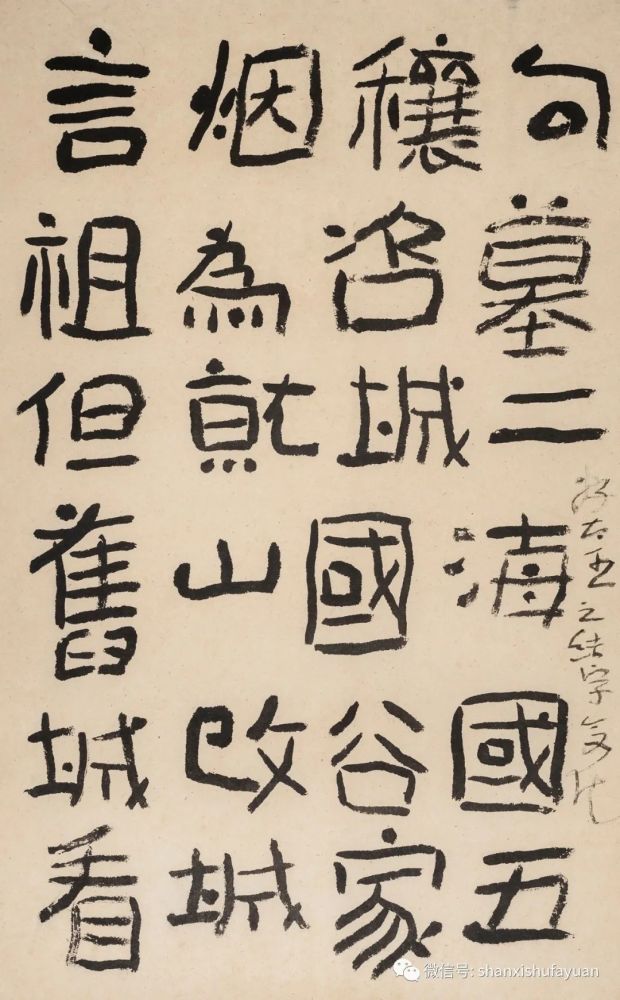 句墓二海國五
穰沿城國谷家
烟為就山改城
言祖但舊城看
好太王之结字
微信号: shanxishufayuan